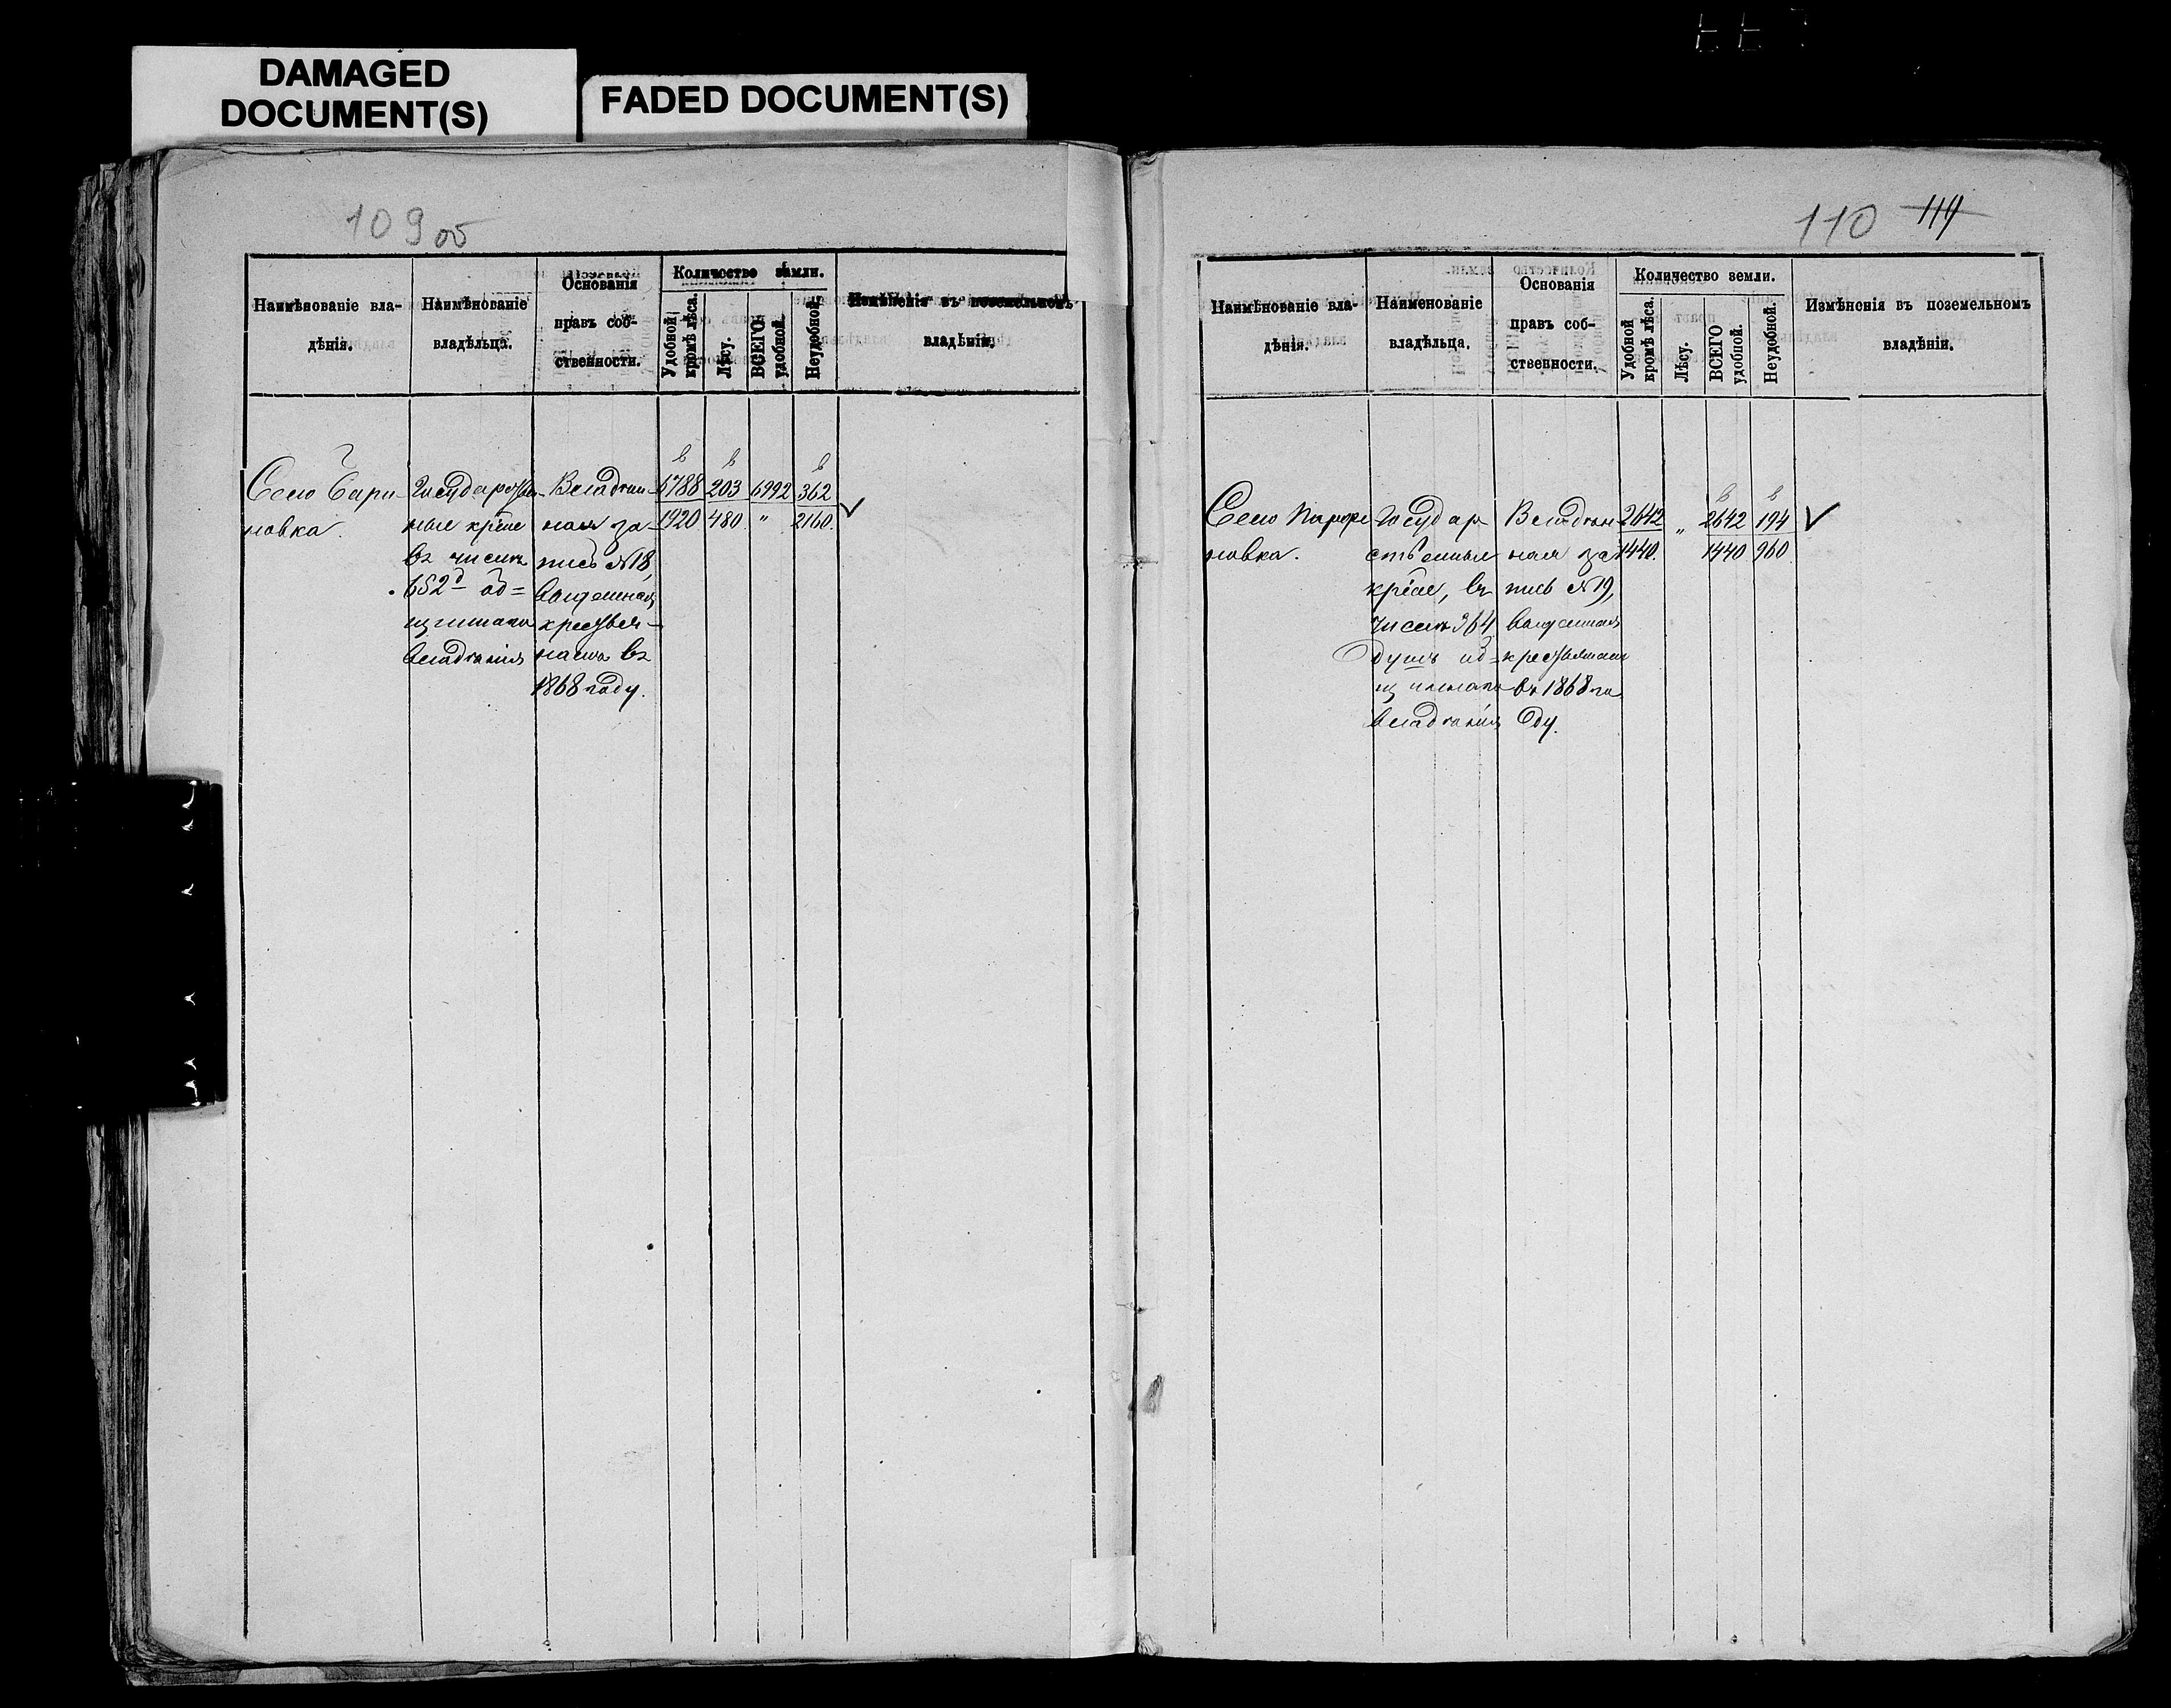 DAMAGED
DOCUMENT(S)
FADED DOCUMENT(S)
109 об
Наимѣнованіе вла-
дѣнія.
Наимѣнованіе
владѣльца.
Основанія
правъ соб-
ственности.
Количество земли.
Удобной
кромѣ лѣса.
Лѣсу.
ВСЕГО
удобной.
Неудобной.
Измѣненія въ поземельномъ
владѣніи.
Село Бари-
новка.
Государствен-
ные кр-не
въ числѣ
652 д об-
щиннаго
владѣнія
Владѣн-
ная за-
пись №18,
выданная
крестья-
намъ въ
1868 году.
6788 203 6992 362
1920 480 " 2160.
110 119
Наимѣнованіе вла-
дѣнія.
Наименованіе
владѣльца.
Основанія
правъ соб-
ственности.
Количество земли.
Удобной
кромѣ лѣса.
Лѣсу.
ВСЕГО
удобной.
Неудобной.
Измѣненія въ поземельномъ
владѣніи.
Село Парфе
новка.
Государ-
ственные
кр-не, въ
числѣ 364
душъ об-
щиннаго
владѣнія
Владѣн
ная за
пись №19,
выданная
крестьянам
въ 1868 го
ду.
2642 " 2642 194
1440. 1440 960